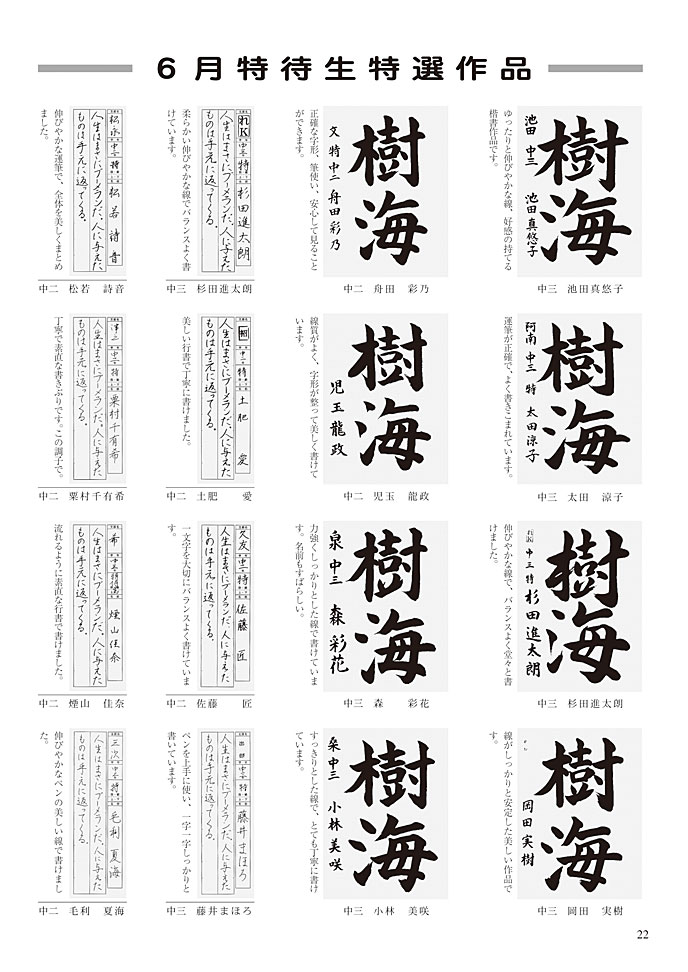 6月特待生特選作品
樹海
池田 中三 池田真悠子
ゆったりと伸びやかな線、好感の持てる
楷書作品です。
中三 池田真悠子
樹海
文 特 中二 舟田彩乃
正確な字形、筆使い、安心して見ること
ができます。
中二 舟田 彩乃
れK 中三 特 杉田進太朗
人生はまさにブーメランだ。人に与えた
ものは手元に返ってくる。
柔らかい伸びやかな線でバランスよく書
けています。
中三 杉田進太朗
松永 中二 特 松若詩音
人生はまさにブーメランだ。人に与えた
ものは手元に返ってくる。
伸びやかな運筆で、全体を美しくまとめ
ました。
中二 松若 詩音
樹海
阿南 中三 特 太田涼子
運筆が正確で、よく書きこまれています。
中三 太田 涼子
樹海
児玉龍政
線質がよく、字形が整って美しく書けて
います。
中二 児玉 龍政
中二 特 土肥 愛
人生はまさにブーメランだ。人に与えた
ものは手元に返ってくる。
美しい行書で丁寧に書けました。
中二 土肥 愛
中二 特 粟村千有希
人生はまさにブーメランだ。人に与えた
ものは手元に返ってくる。
丁寧で素直な書きぶりです。この調子で。
中二 粟村千有希
樹海
中三 特 杉田進太朗
伸びやかな線で、バランスよく堂々と書
けました。
中三 杉田進太朗
樹海
泉 中三 森彩花
力強くしっかりとした線で書けていま
す。名前もすばらしい。
中三 森 彩花
久友 中二 特 佐藤 匠
人生はまさにブーメランだ。人に与えた
ものは手元に返ってくる。
一文字を大切にバランスよく書けていま
す。
中二 佐藤 匠
希 中二 煙山佳奈
人生はまさにブーメランだ。人に与えた
ものは手元に返ってくる。
流れるように素直な行書で書けました。
中二 煙山 佳奈
樹海
岡田実樹
線がしっかりと安定した美しい作品で
す。
中三 岡田 実樹
樹海
桑 中三 小林美咲
すっきりとした線で、とても丁寧に書け
ています。
中三 小林 美咲
中三 特 藤井まほろ
人生はまさにブーメランだ。人に与えた
ものは手元に返ってくる。
ペンを上手に使い、一字一字しっかりと
書いています。
中三 藤井まほろ
三次 中二 特 毛利夏海
人生はまさにブーメランだ。人に与えた
ものは手元に返ってくる。
伸びやかなペンの美しい線で書けまし
た。
中二 毛利 夏海
22